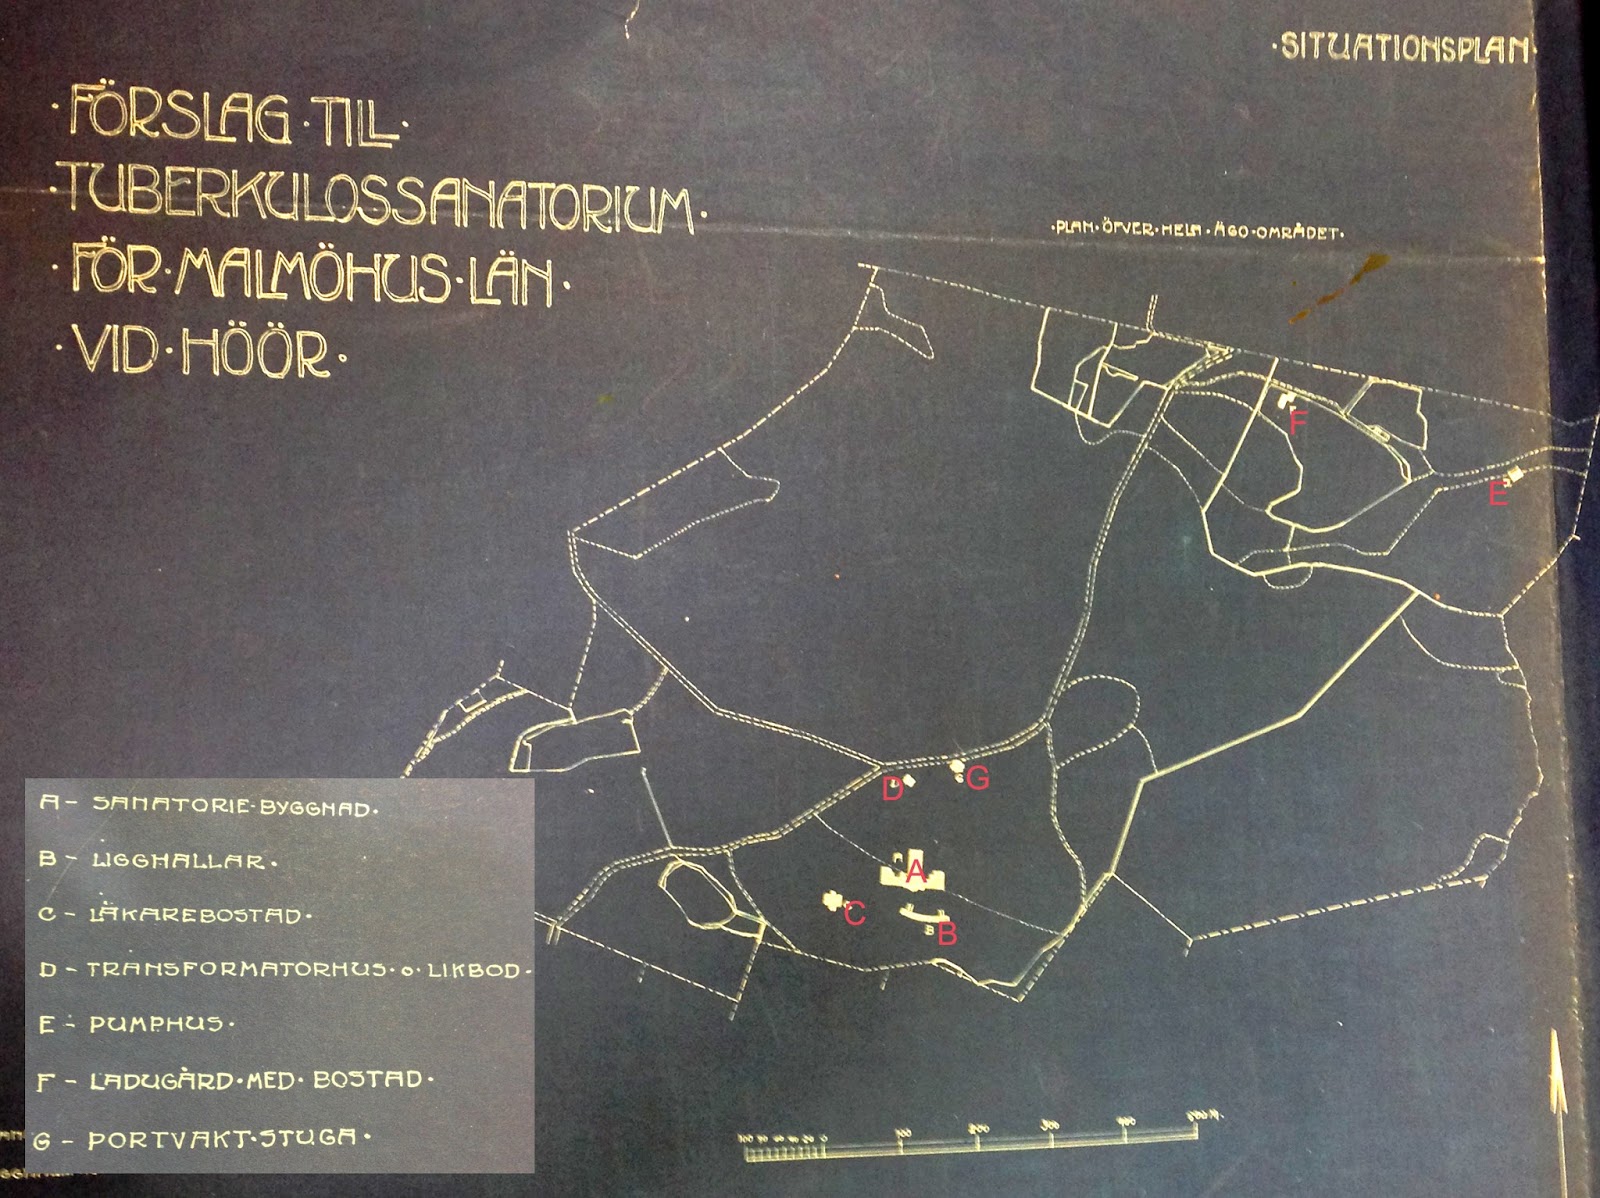 ·SITUATIONSPLAN·
·FÖRSLAG·TILL·
·TUBERKULOSSANATORIUM·
·FÖR·MALMÖHUS·LÄN·
·VID·HÖÖR·
·PLAN·ÖFVER·HELA·ÄGO·OMRÅDET·
F
E
D
G
G
A
C
B
B
A- SANATORIE·BYGGNAD·
B- LIGGHALLAR·
C- LÄKAREBOSTAD·
D- TRANSFORMATORHUS·o·LIKBOD·
E- PUMPHUS·
F- LADUGÅRD·MED·BOSTAD·
G- PORTVAKT·STUGA·
100 80 60 40 20 0 100 200 300 400 500 M.